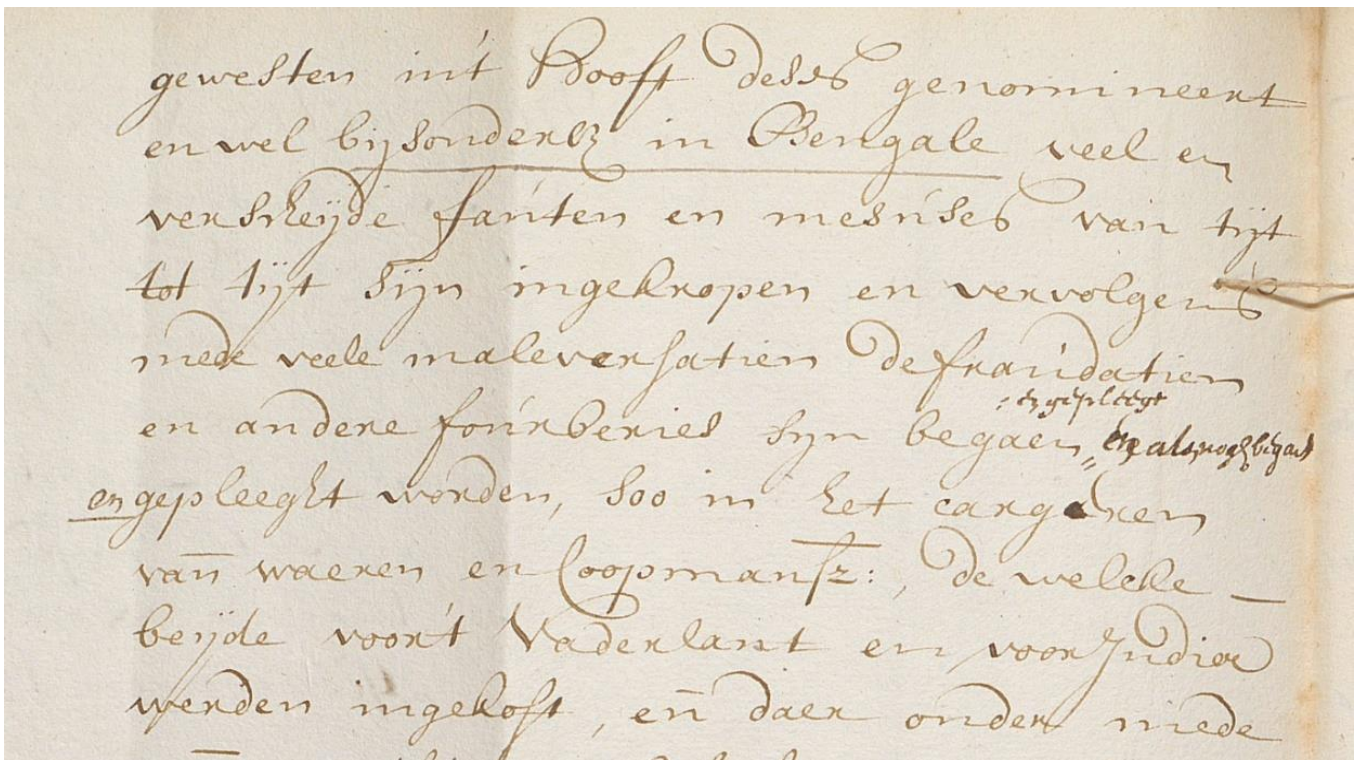 gewesten in't Hooft deses genomineert
en wel bijsonderlz in Bengale veel en
verscheijde fauten en mesuses van tijt
tot tijt sijn ingekropen en vervolgens
mede veele maleversatien defraudatien
en gepleegt
en andere fourberies sijn begaen, en als nogh begaen
en gepleeght worden, soo in het cargeren
van̄ waeren en Coopmansz:, de welcke _
beijde voor't Vaderlant en voor Indien
werden ingekoft, en̄ daer onder mede